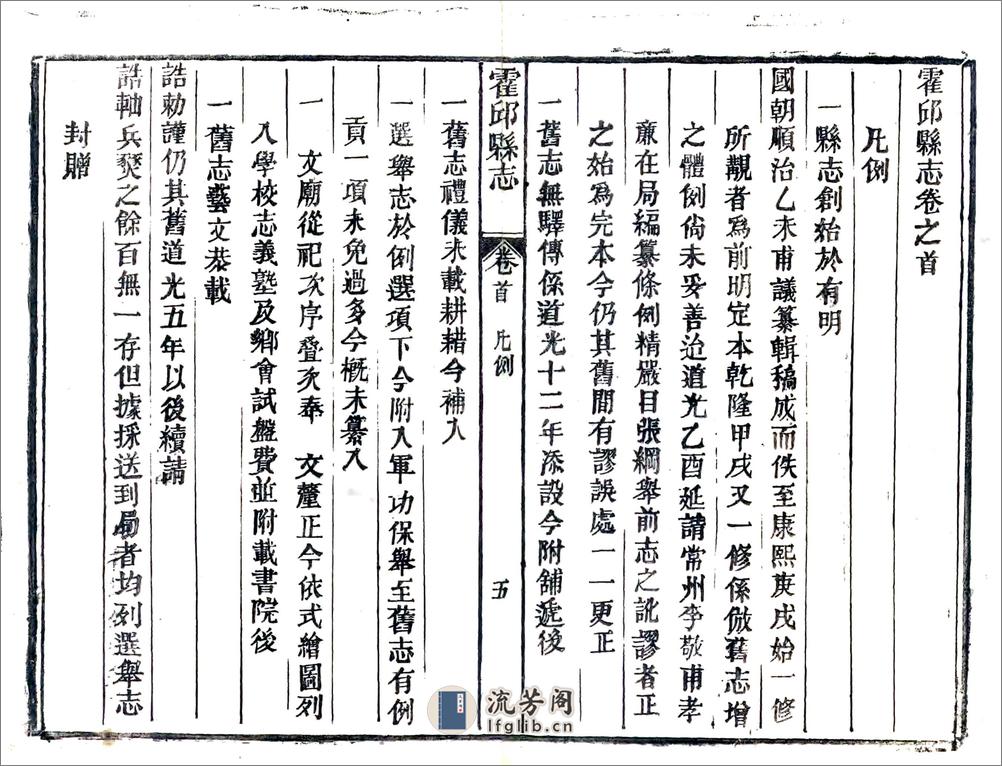 霍邱縣志卷之首
凡例
一縣志創始於有明
國朝順治乙未甫議纂輯稿成而佚至康熙庚戌始一修
所觀者爲前明定本乾隆甲戌又一修係倣舊志增
之體例尙未妥善迨道光乙酉延請常州李敬甫孝
廉在局編纂條例精嚴目張綱舉前志之訛謬者正
之始爲完本今仍其舊間有謬誤處一一更正
一舊志無驛傳係道光十二年添設今附舖遞後
霍邱縣志
卷首
凡例
五
一舊志禮儀未載耕耤今補入
一選舉志於例選項下今附入軍功保舉至舊志有例
貢一項未免過多今概未纂入
一文廟從祀次序疊次奉 文釐正今依式繪圖列
入學校志義塾及鄉會試盤費並附載書院後
一舊志藝文恭載
誥勅謹仍其舊道光五年以後續請
誥軸兵燹之餘百無一存但據採送到局者均列選舉志
封贈
流芳阁
lfglib.cn